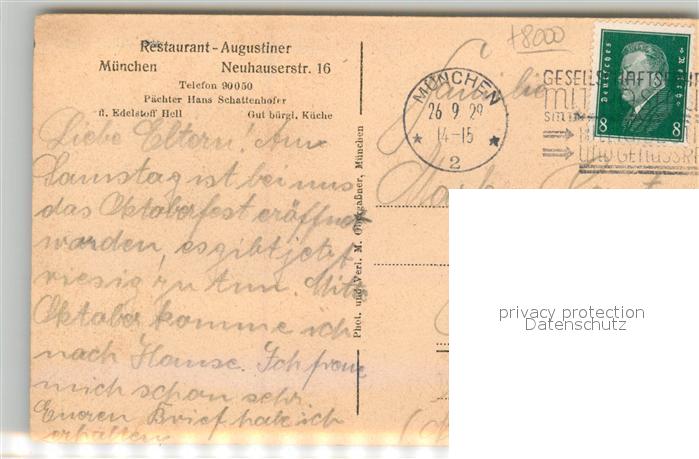 +8000
Restaurant-Augustiner
München Neuhauserstr. 16
Telefon 90050
Pächter Hans Schattenhofer
ff. Edelstoff Hell Gut bürgl. Küche
Liebe Eltern! Am
Samstag ist bei uns
das Oktoberfest eröffnet
worden, es gibt jetzt
riesig zu tun. Mitte
Oktober komme ich
nach Hause. Ich freue
mich schon sehr.
Eueren Brief habe ich
erhalten.
Phot. und Verl. M. Obergaßner, München
Familie
MÜNCHEN
26 9 29
14-15
2
GESELLSCHAFTS
MIT
UND GENUSS
Deutsches Reich
8 8
privacy protection
Datenschutz